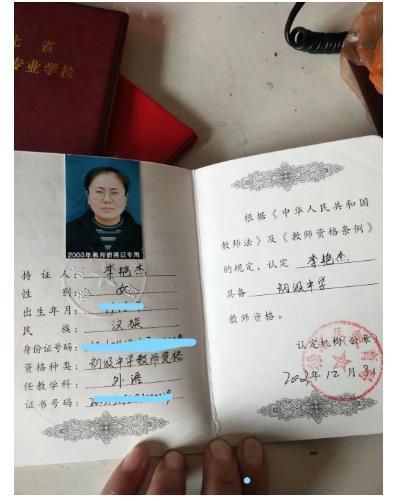 北 省
专业学校
2003年教师资格证专用
持 证 人: 李艳杰
性 别: 女
出生年月:
民 族: 汉族
身份证号码:
资格种类: 初级中学教师资格
任教学科: 外语
证书号码:
根据《中华人民共和国
教师法》及《教师资格条例》
的规定,认定 李艳杰
具备 初级中学
教师资格。
认定机构(公章
2002年12月31